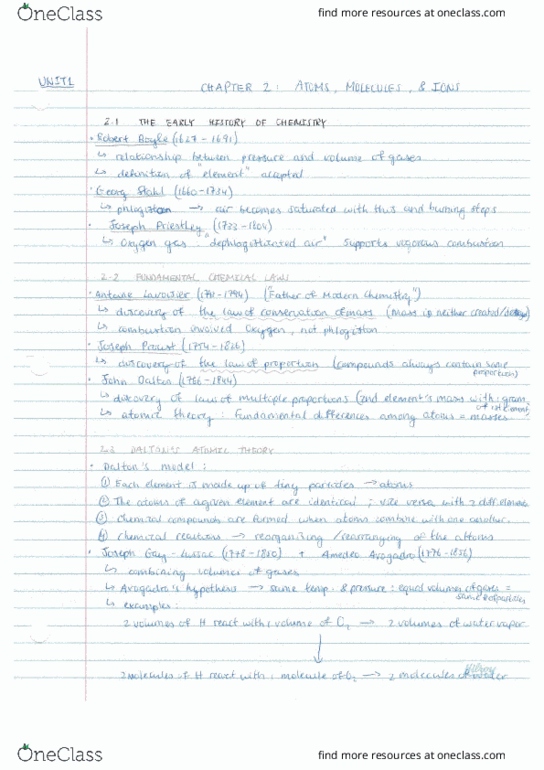 OneClass
find more resources at oneclass.com
UNIT1
CHAPTER 2: ATOMS, MOLECULES, & IONS
2.1 THE EARLY HISTORY OF CHEMISTRY
• Robert Boyle (1627-1691)
↳ relationship between pressure and volume of gases
↳ definition of "element" accepted
• Georg Stahl (1660-1734)
↳ phlogiston → air becomes saturated with this and burning stops
• Joseph Priestley (1733-1804)
↳ Oxygen gas "dephlogisticated air" supports vigorous combustion
2.2 FUNDAMENTAL CHEMICAL LAWS
• Antoine Lavoisier ("Father of Modern Chemistry")
↳ discovery of the law of conservation of mass (mass is neither created/destroy)
↳ combustion involved Oxygen, not phlogiston
• Joseph Proust (1754-1826)
↳ discovery of the law of proportion (compounds always contain same
proportion)
• John Dalton (1766-1844)
↳ discovery of law of multiple proportions (2nd element's mass with 1 gram
of 1st element)
↳ atomic theory: fundamental differences among atoms = masses
2.3 DALTON'S ATOMIC THEORY
• Dalton's model:
① Each element is made up of tiny particles → atoms
② The atoms of a given element are identical; vize versa with 2 diff elements
③ chemical compounds are formed when atoms combine with one another.
④ chemical reactions → reorganizing/rearranging of the atoms
• Joseph Gay-Lussac + Amedeo Avogadro
↳ combining volumes of gases
↳ Avogadro's hypothesis → same temp. & pressure: equal volumes of gases =
same # of particles
↳ examples:
2 volumes of H react with 1 volume of → 2 volumes of water vapor
↓
2 molecules of H react with 1 molecule of O₂ → 2 molecules of water
OneClass
find more resources at oneclass.com